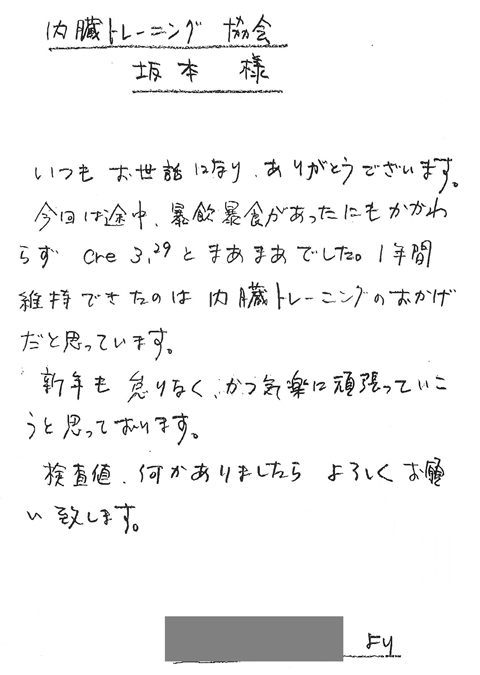 内臓トレーニング 協会
坂本 様
いつも お世話になり、ありがとうございます。
今回は途中、暴飲暴食があったにもかかわ
らず cre 3.29 と まあまあでした。1年間
維持できたのは 内臓トレーニングのおかげ
だと思っています。
新年も 怠りなく、かつ気楽に頑張っていこ
うと思っております。
検査値、何かありましたら よろしく お願
い 致します。
より